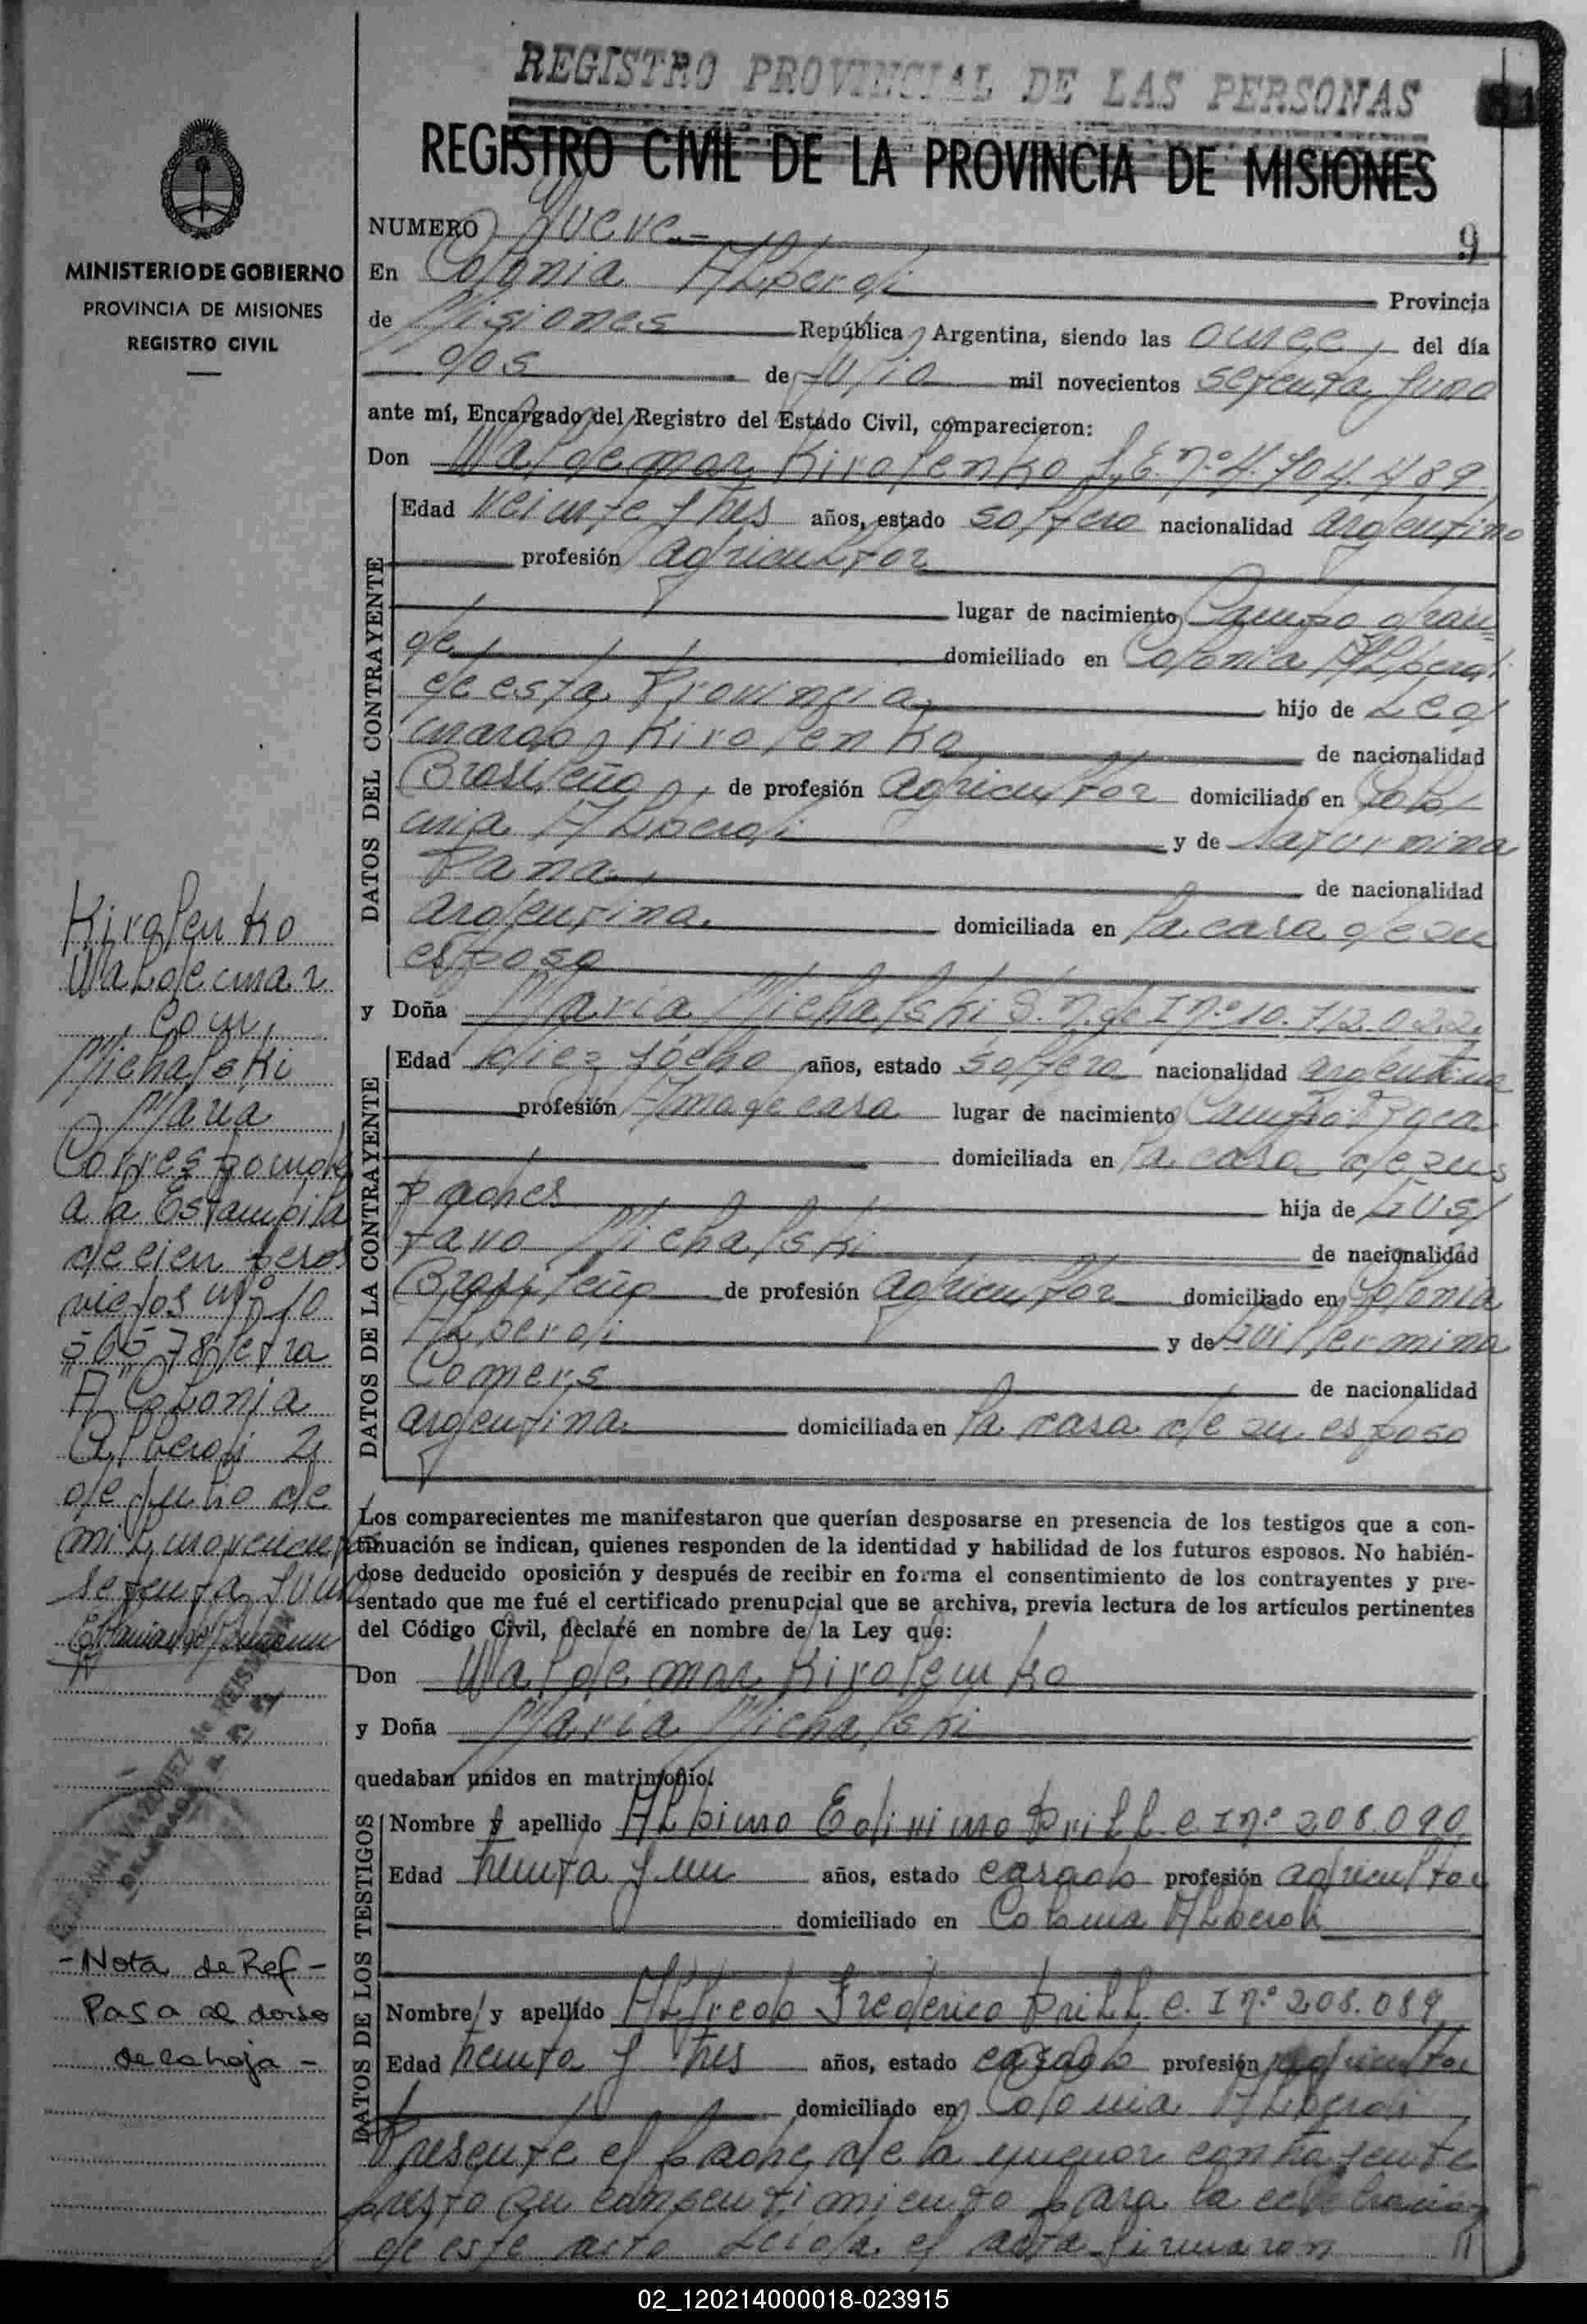 REGISTRO PROVINCIAL DE LAS PERSONAS
REGISTRO CIVIL DE LA PROVINCIA DE MISIONES
MINISTERIO DE GOBIERNO
PROVINCIA DE MISIONES
REGISTRO CIVIL
NUMERO Nueve.-
9
En Colonia Alberdi Provincia
de Misiones República Argentina, siendo las once, del día
dos de Julio mil novecientos setenta y uno
ante mí, Encargado del Registro del Estado Civil, comparecieron:
Don Waldemar Kirolenko L.E. nº 4.704.489
DATOS DEL CONTRAYENTE
Edad veinte y tres años, estado soltero nacionalidad argentino
profesión agricultor
lugar de nacimiento Campo gran=
de domiciliado en Colonia Alberdi
de esta Provincia hijo de Leo/
nardo Kirolenko de nacionalidad
Brasileño, de profesión agricultor domiciliado en Colo/
nia Alberdi y de Saturnina
Pana de nacionalidad
argentina. domiciliada en la casa de su
esposo
y Doña María Michalski S. N. de I nº 10.712.022
DATOS DE LA CONTRAYENTE
Edad diez y ocho años, estado soltera nacionalidad argentina
profesión Ama de casa lugar de nacimiento Campo Roca
domiciliada en la casa de sus
padres hija de Gus/
tavo Michalski de nacionalidad
Brasileño de profesión agricultor domiciliado en Colonia
Alberdi y de Guillermina
Comers de nacionalidad
argentina domiciliada en la casa de su esposo
Los comparecientes me manifestaron que querían desposarse en presencia de los testigos que a con-
tinuación se indican, quienes responden de la identidad y habilidad de los futuros esposos. No habién-
dose deducido oposición y después de recibir en forma el consentimiento de los contrayentes y pre-
sentado que me fué el certificado prenupcial que se archiva, previa lectura de los artículos pertinentes
del Código Civil, declaré en nombre de la Ley que:
Don Waldemar Kirolenko
y Doña María Michalski
quedaban unidos en matrimonio.
DATOS DE LOS TESTIGOS
Nombre y apellido Albino Edivino Prill e I nº 208.090
Edad treinta y un años, estado casado profesión agricultor
domiciliado en Colonia Alberdi
Nombre y apellido Alfredo Frederico Prill e. I nº 208.089
Edad treinta y tres años, estado casado profesión agricultor
domiciliado en Colonia Alberdi
Presente el padre de la menor contrayente
presto su consentimiento para la celebracion
de este acto Leida el acta firmaron
Kirolenko
Waldemar
Con
Michalski
María
Corresponde
a la Estampilla
de cien pesos
viejos nº 10
565 78 letra
A Colonia
Alberdi 2
de julio de
mil novecientos
setenta y uno
DELEGADA
- Nota de Ref -
Pasa al dorso
de la hoja -
02_120214000018-023915